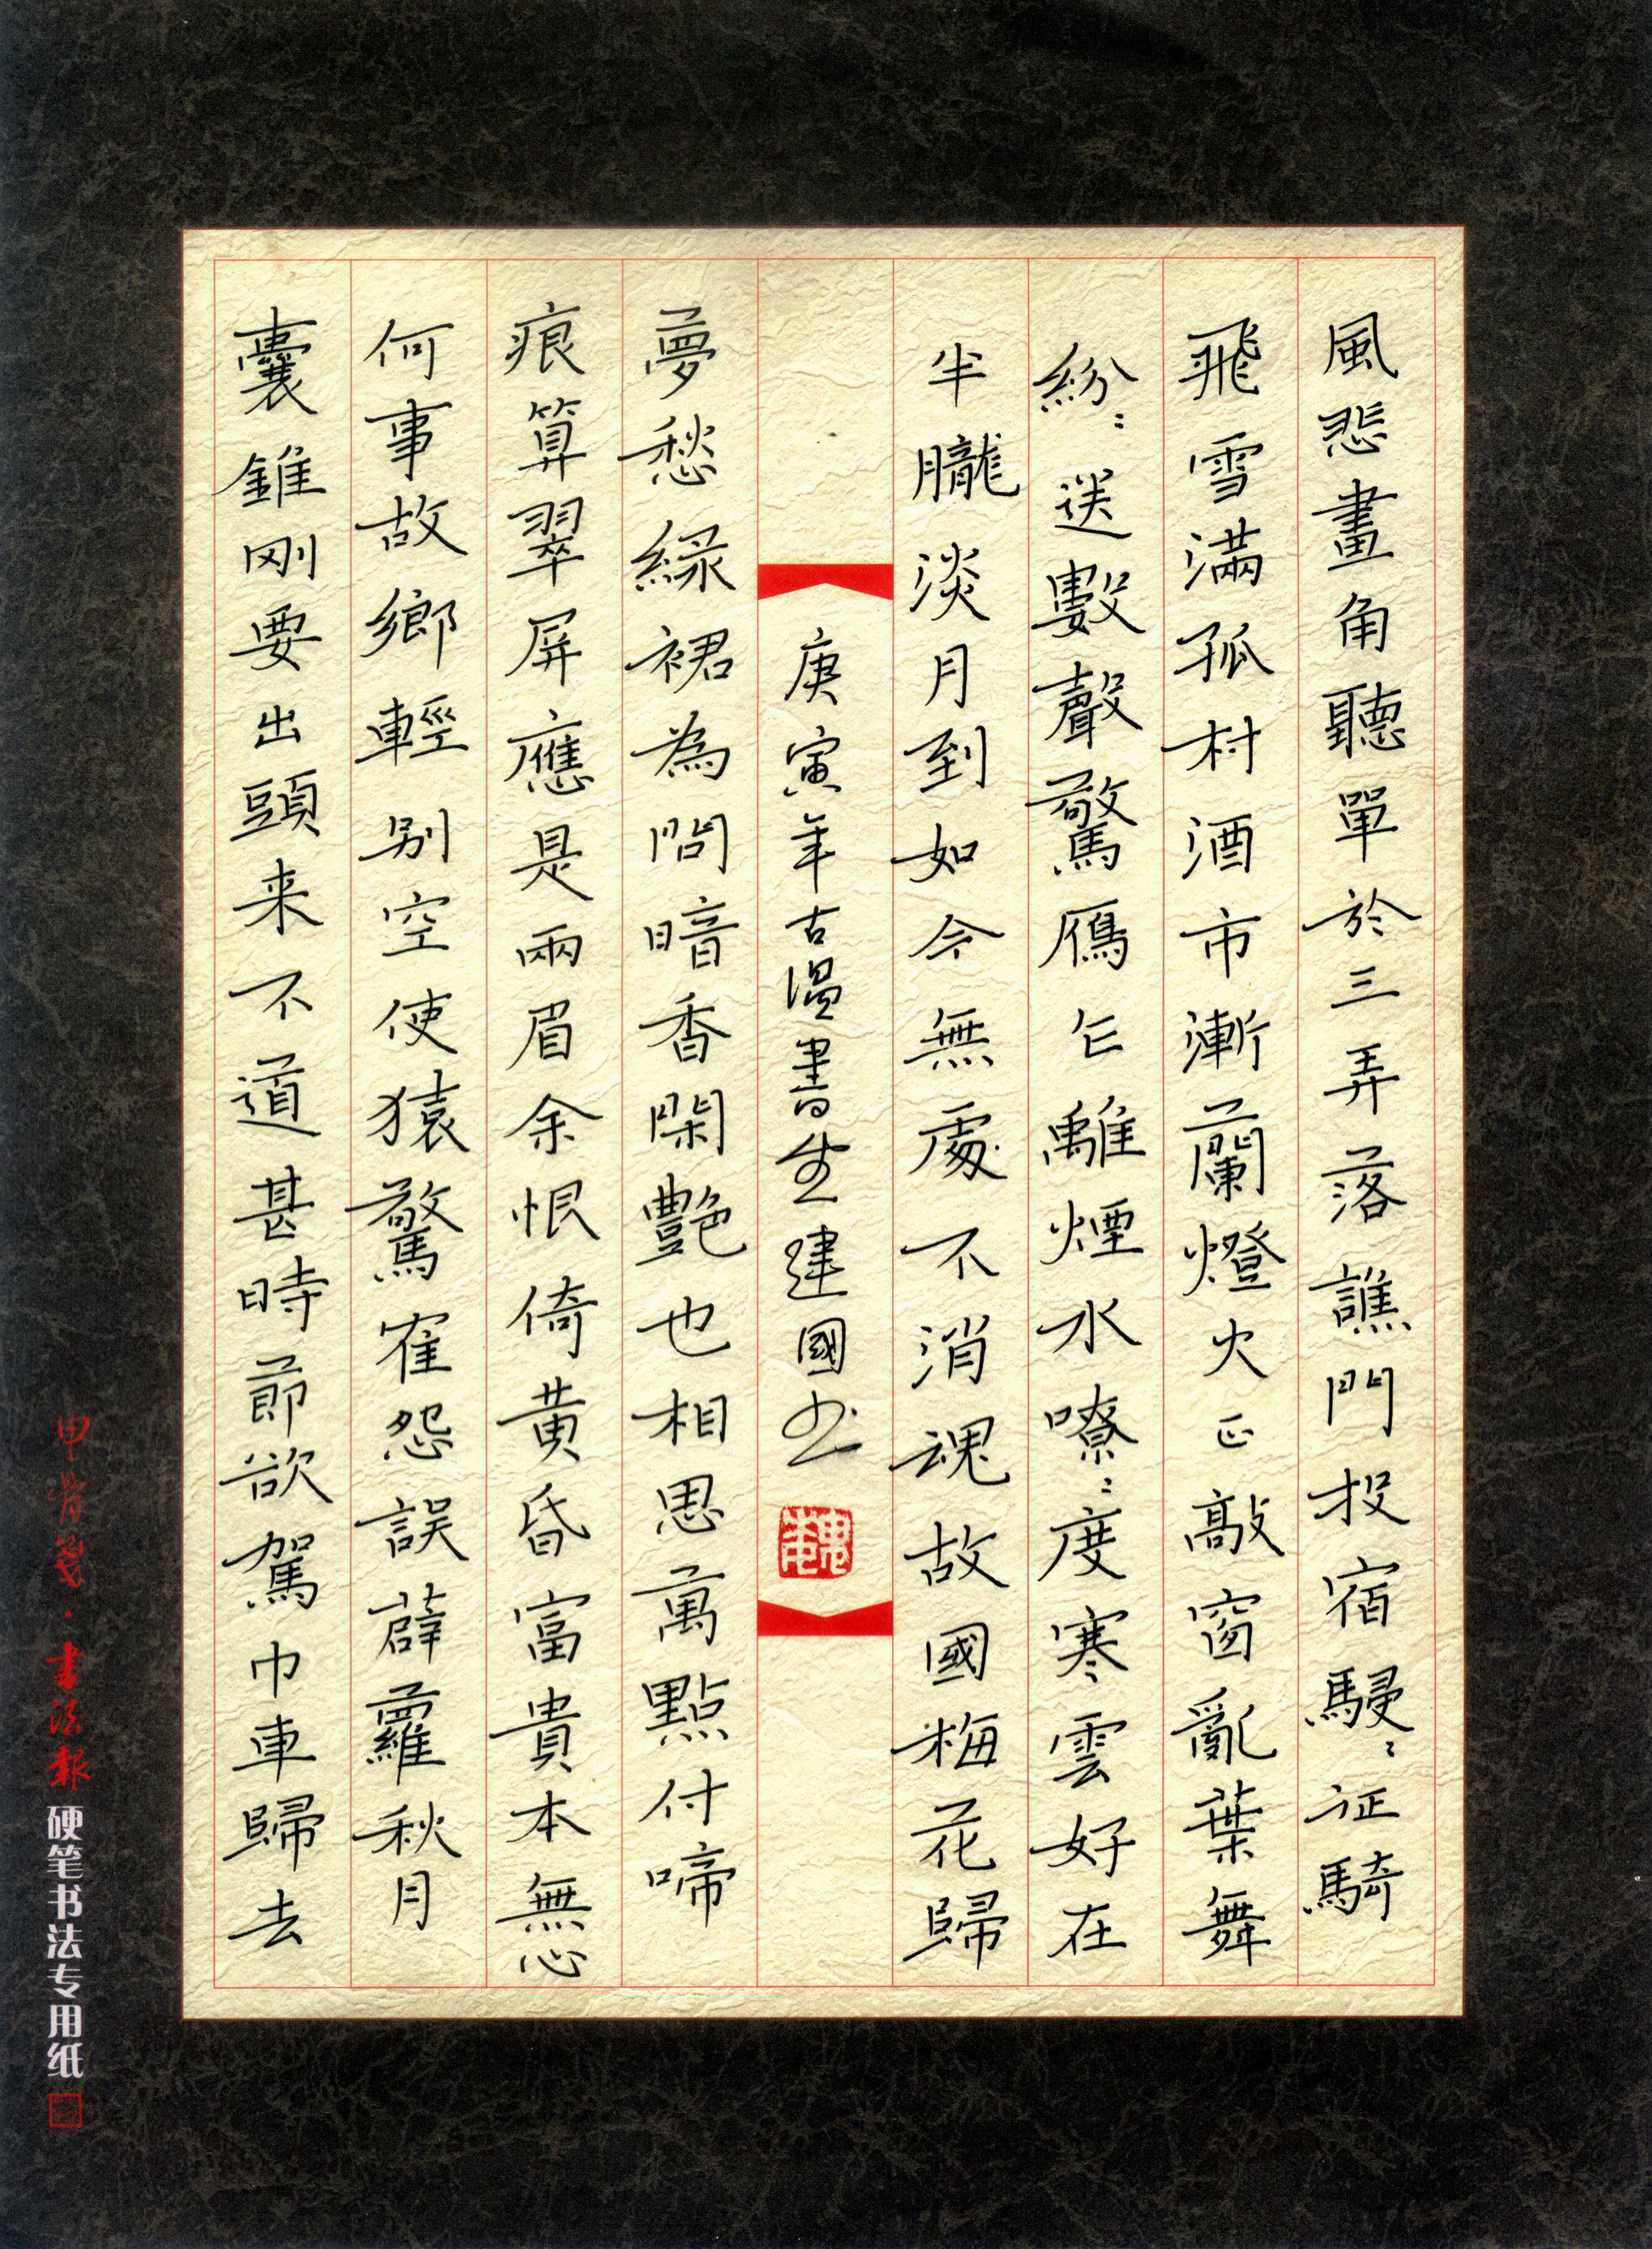 風悲畫角聽單於三弄落譙門投宿駸〻征騎
飛雪滿孤村酒市漸蘭燈火正敲窗亂葉舞
紛〻送數聲驚鴈乍離煙水嘹〻度寒雲好在
半朧淡月到如今無處不消魂故國梅花歸
庚寅年古溫書生建國书
魏
夢愁緑裙為問暗香閑艷也相思萬點付啼
痕算翠屏應是兩眉余恨倚黃昏富貴本無心
何事故鄉輕别空使猿驚隺怨誤薜蘿秋月
囊錐刚要出頭来不道甚時節欲駕巾車歸去
甲骨箋·書法報 硬笔书法专用纸